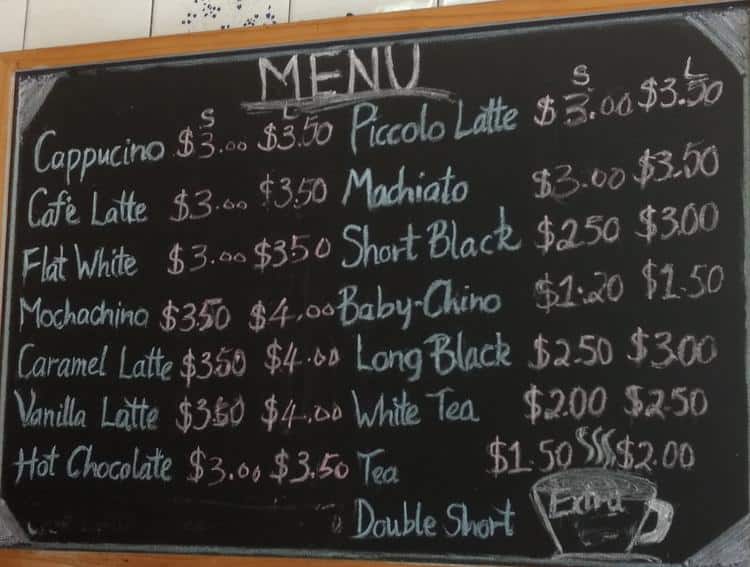 MENU
S L
Cappucino $3.00 $3.50
Cafe Latte $3.00 $3.50
Flat White $3.00 $350
Mochachino $3.50 $4.00
Caramel Latte $350 $4.00
Vanilla Latte $350 $4.00
Hot Chocolate $3.00 $3.50
S L
Piccolo Latte $3.00 $3.50
Machiato $3.00 $3.50
Short Black $2.50 $3.00
Baby-Chino $1.20 $1.50
Long Black $2.50 $3.00
White Tea $2.00 $2.50
Tea $1.50 $2.00
Double Short Extra